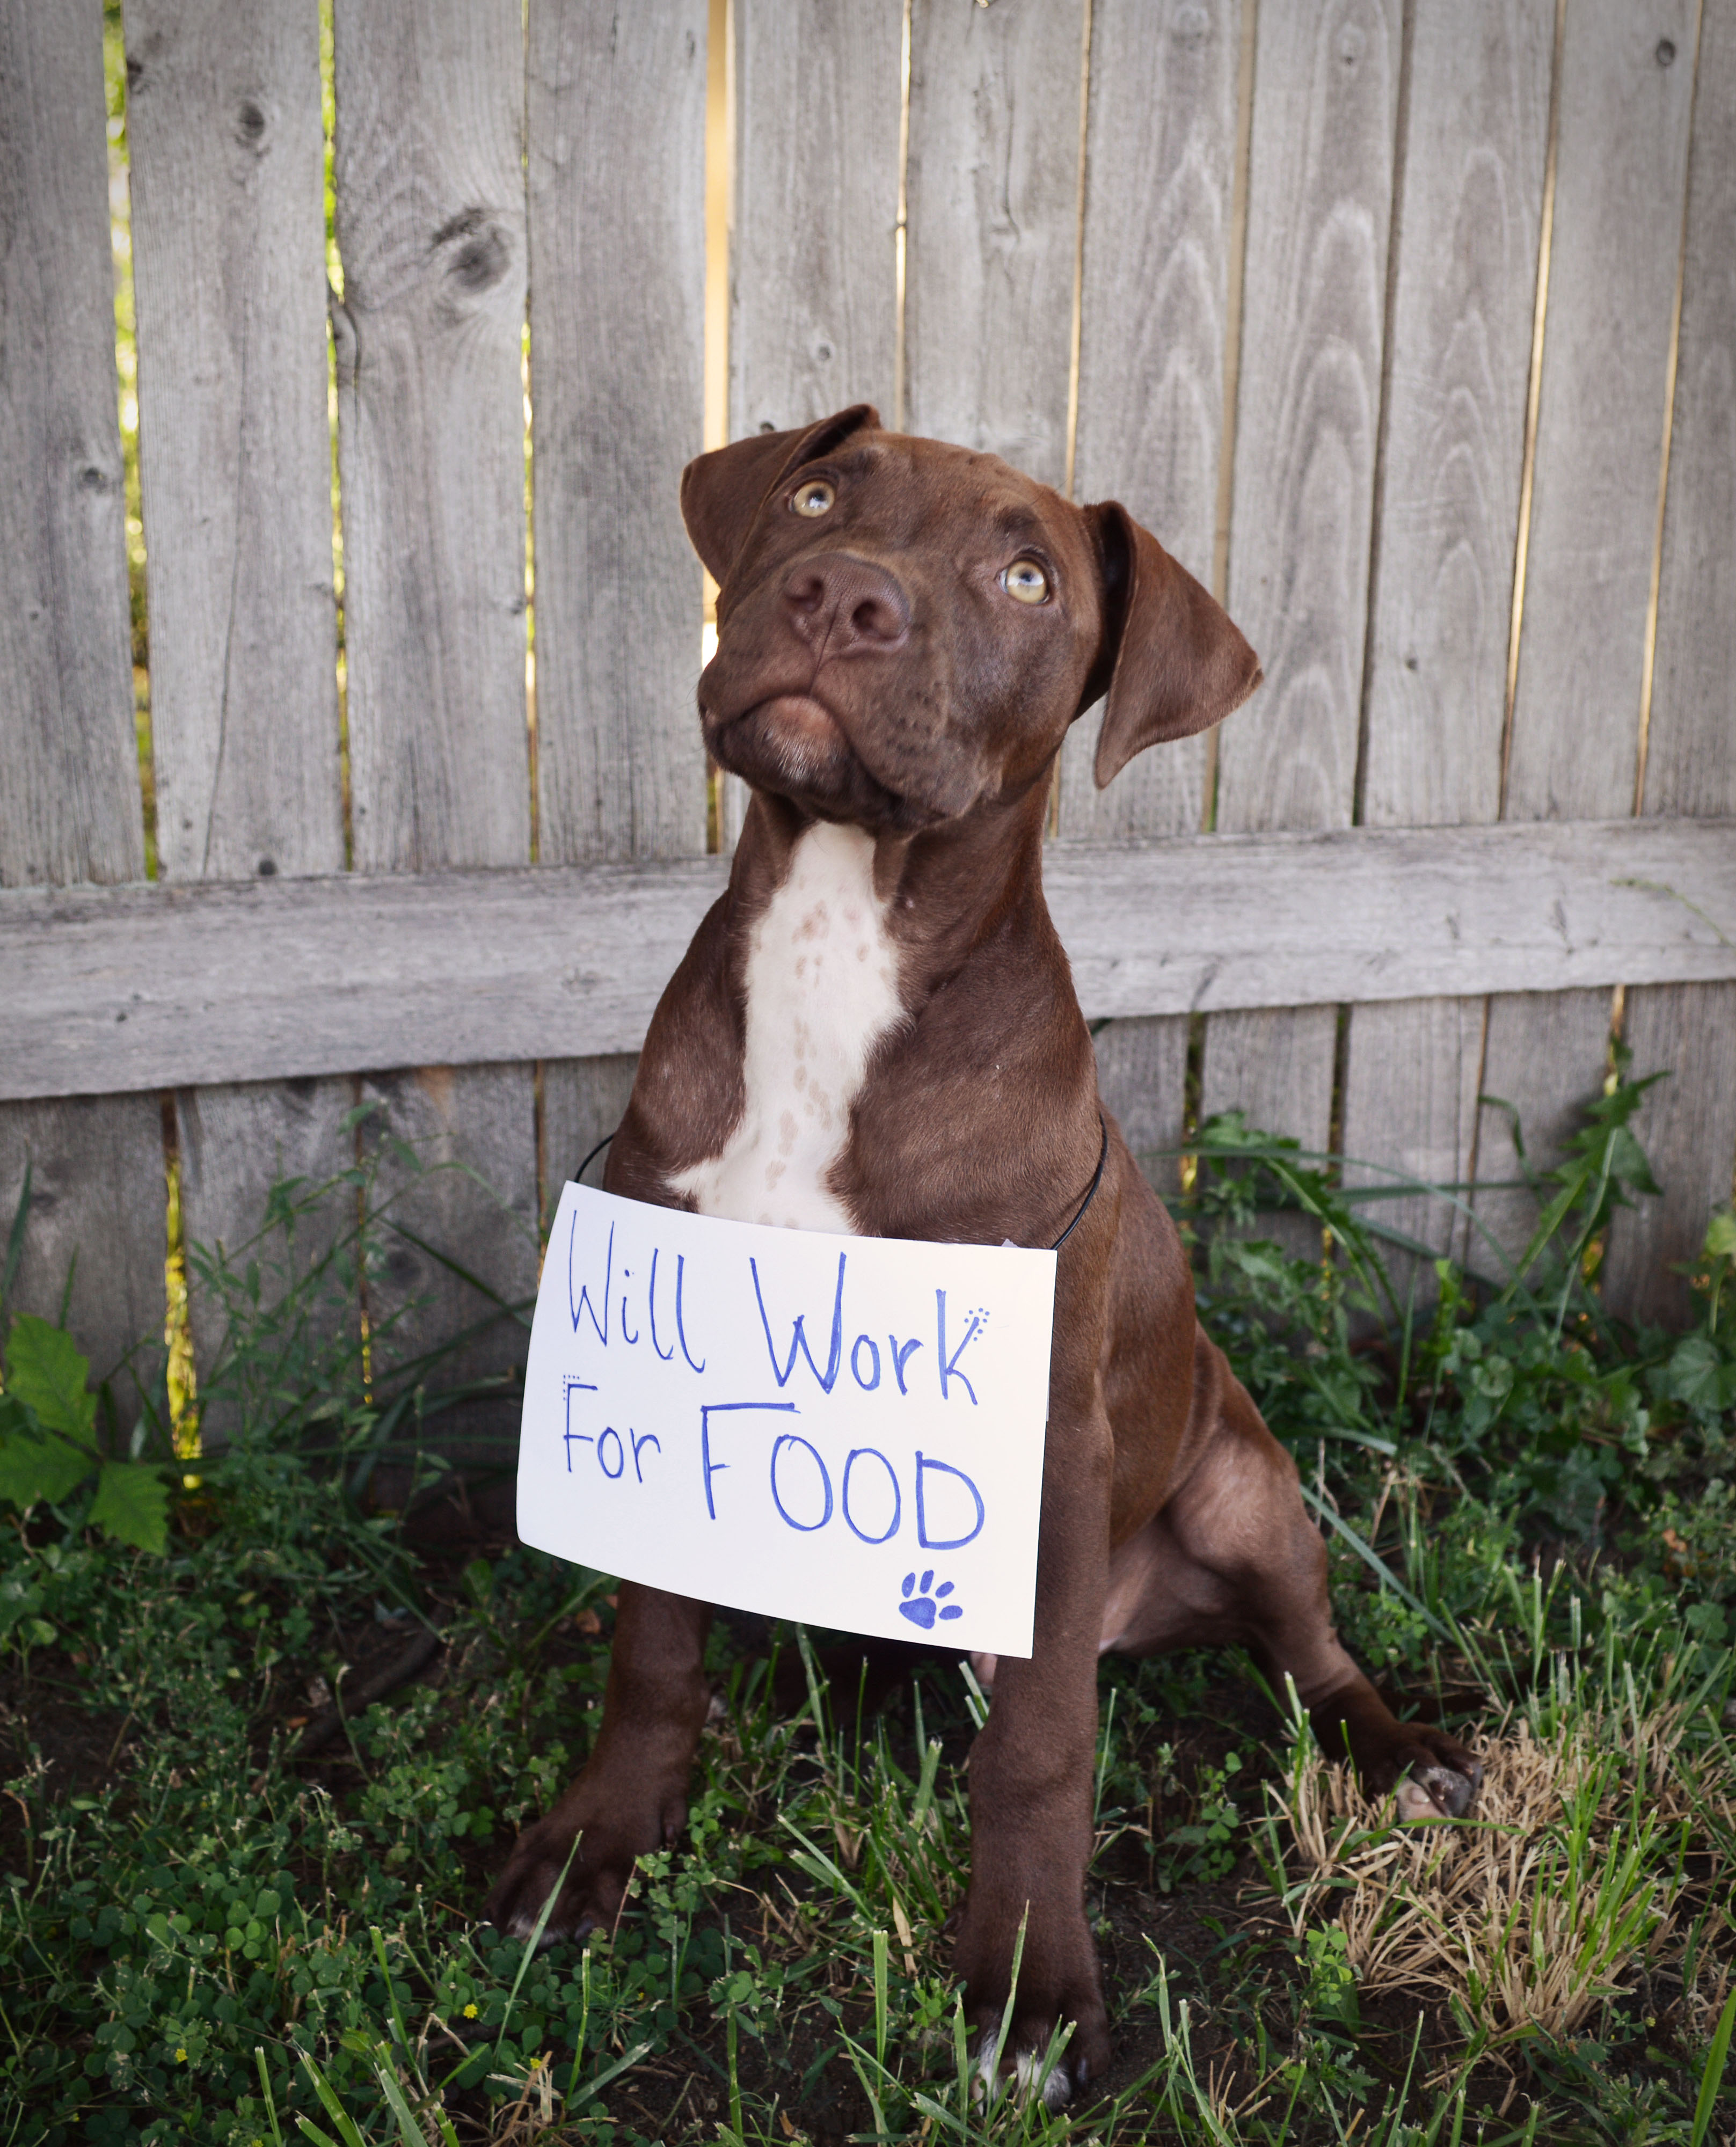 Will Work
For FOOD